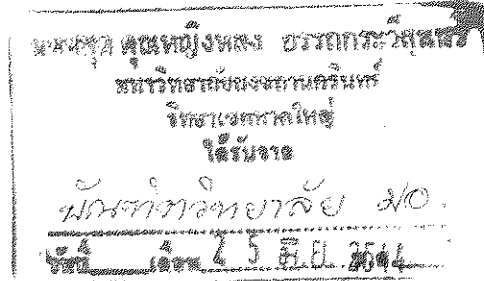 หอสมุด คุณหญิงหลง อรรถกระวีสุนทร
มหาวิทยาลัยสงขลานครินทร์
วิทยาเขตหาดใหญ่
ได้รับจาก
บัณฑิตวิทยาลัย มอ.
วันที่ เดือน 25 มิ.ย. 2544